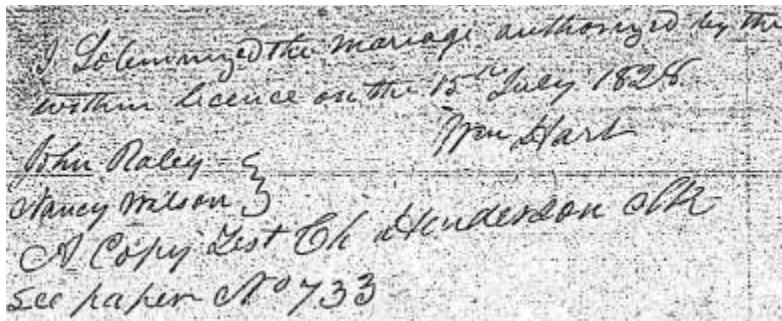 I Solemnized the mariage authorized by the
within licence on the 15th July 1828
Wm Hart
John Raley
Nancy Wilson
A Copy Test Ch Henderson Clk
See paper No 733